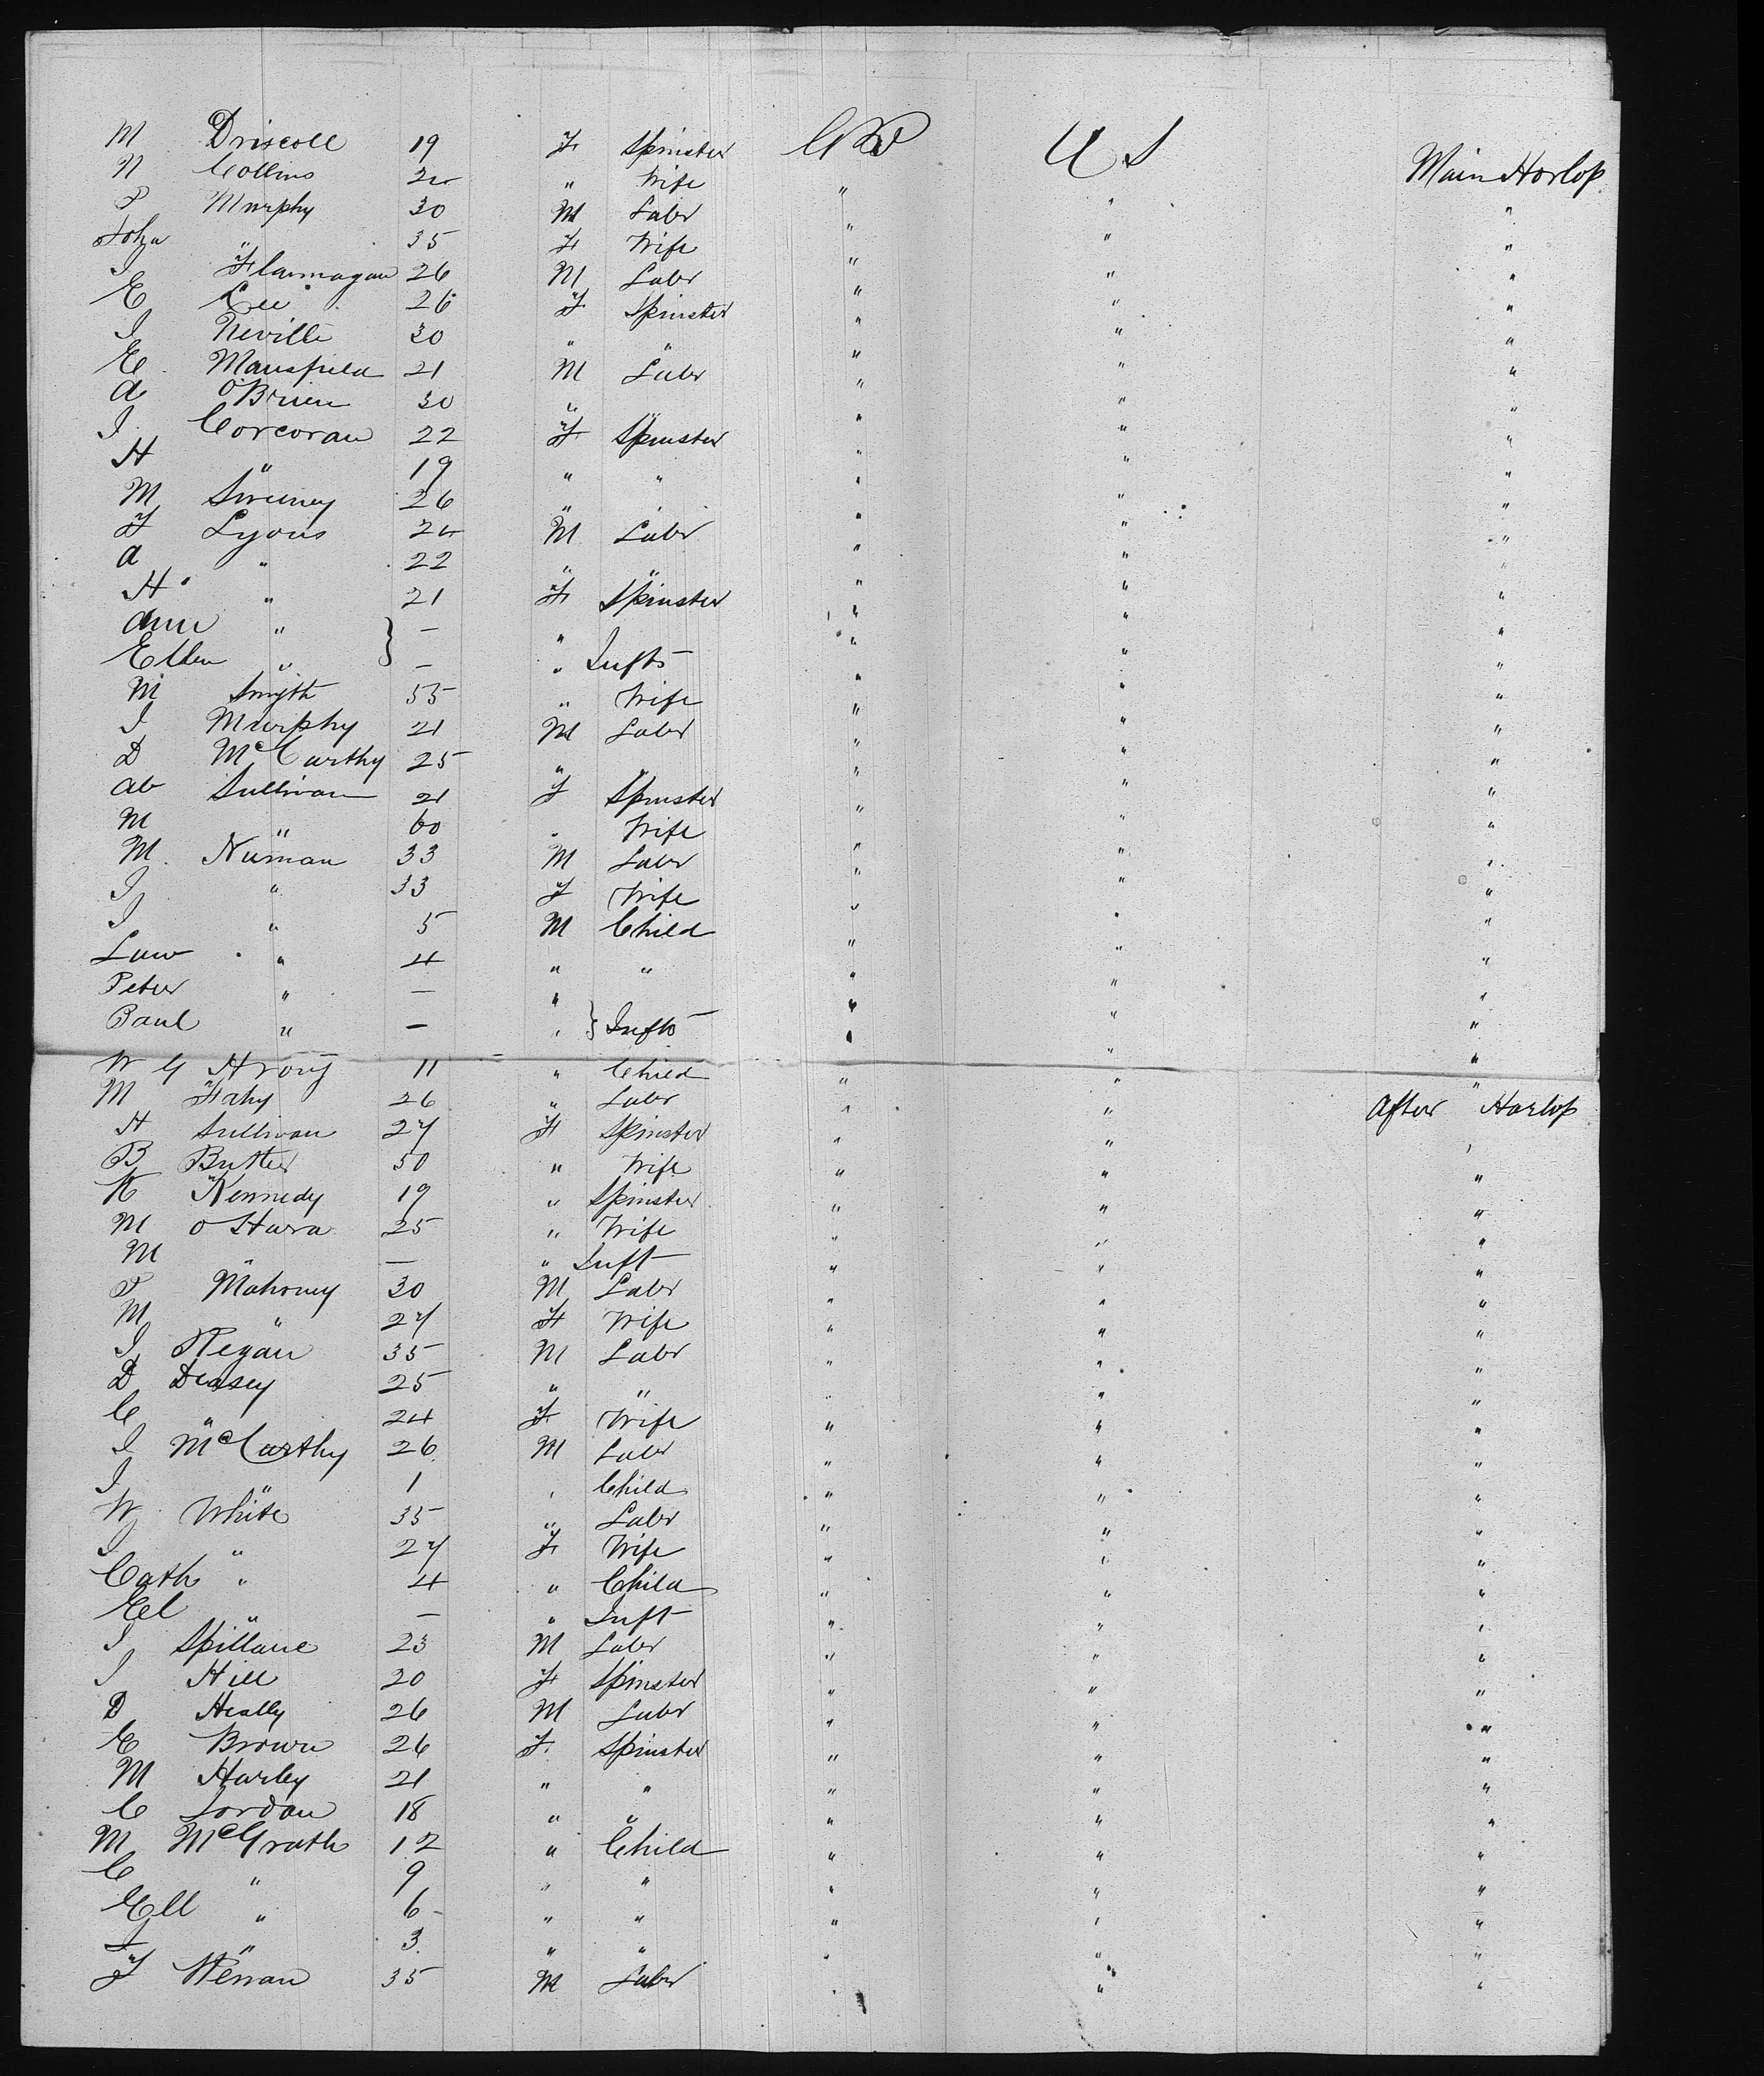 M Driscoll 19 F Spinster GB U S Main Horlop
N Collins 24 " Wife " " "
P Murphy 30 M Labr " " "
" 35 F Wife " " "
J Flannagan 26 M Labr " " "
E Lee 26 F Spinster " " "
J Neville 30 " " " " "
E Mansfield 21 M Labr " " "
A O'Brien 30 " " " " "
J Corcoran 22 F Spinster " " "
H " 19 " " " " "
M Sweeney 26 " " " " "
F Lyons 24 M Labr " " "
A " 22 " " " " "
H " 21 F Spinster " " "
Ann " } — " " " "
Ellen " } — " Infts " " "
M Smyth 55 " Wife " " "
J Murphy 21 M Labr " " "
D McCarthy 25 " " " " "
Ab Sullivan 21 F Spinster " " "
M " 60 " Wife " " "
M Numan 33 M Labr " " "
J " 33 F Wife " " "
J " 5 M Child " " "
Law " 4 " " " " "
Peter " — " " " "
Paul " — " } Infts " " "
W G 11 " Child " " "
M Fahy 26 " Labr " " After Horlop
H Sullivan 27 F Spinster " " "
B Butler 50 " Wife " " "
K Kennedy 19 " Spinster " " "
M O Hara 25 " Wife " " "
M " — " Inft " " "
P Mahoney 30 M Labr " " "
M " 27 F Wife " " "
J Regan 35 M Labr " " "
D Deasey 25 " " " " "
C " 24 F Wife " " "
J McCarthy 26 M Labr " " "
J " 1 " Child " " "
W White 35 " Labr " " "
J " 27 F Wife " " "
Cath " 4 " Child " " "
El " — " Inft " " "
J Spillane 23 M Labr " " "
J Hill 20 F Spinster " " "
D Heally 26 M Labr " " "
E Brown 26 F Spinster " " "
M Harley 21 " " " " "
C Jordan 18 " " " " "
M McGrath 12 " Child " " "
C " 9 " " " " "
Ell " 6 " " " " "
J " 3 " " " " "
F 35 M Labr " " "